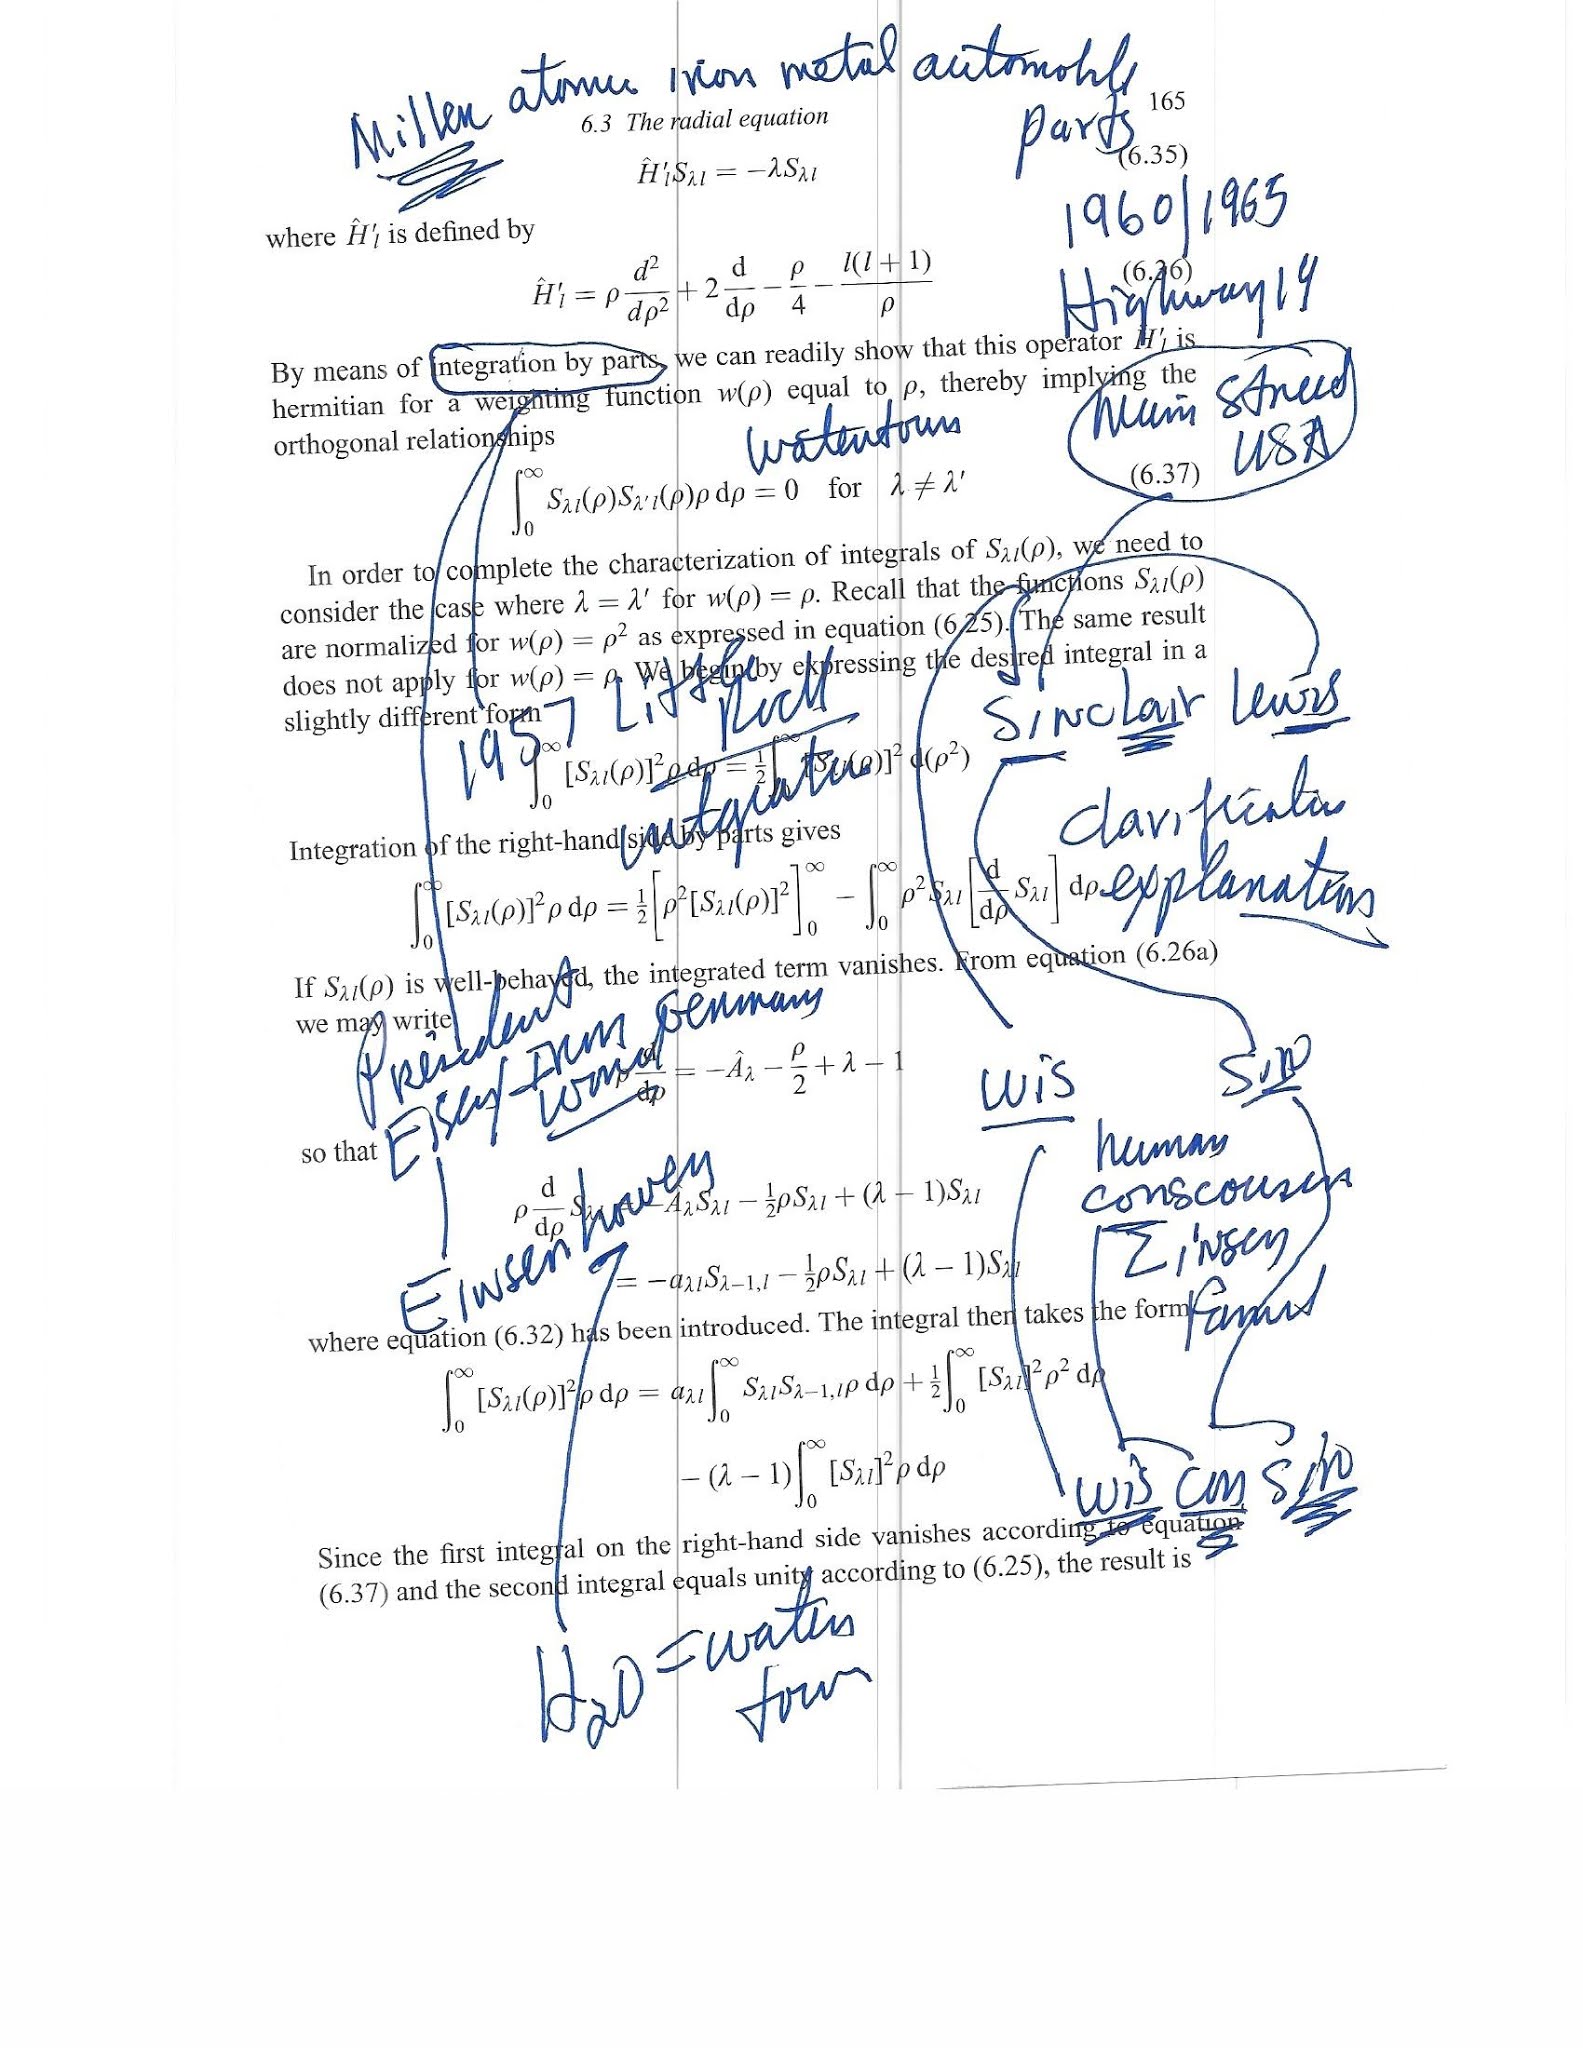 Miller atomic iron metal automobile
parts
6.3 The radial equation 165
Ĥ′ₗS_λl = −λS_λl (6.35)
1960/1965
where Ĥ′ₗ is defined by
Ĥ′ₗ = ρ d²/dρ² + 2 d/dρ − ρ/4 − l(l + 1)/ρ (6.36)
Highway 14
By means of integration by parts, we can readily show that this operator Ĥ′ₗ is
hermitian for a weighting function w(ρ) equal to ρ, thereby implying the
orthogonal relationships
Main Street
USA
watertown
∫₀^∞ S_λl(ρ)S_λ′l(ρ)ρ dρ = 0 for λ ≠ λ′ (6.37)
In order to complete the characterization of integrals of S_λl(ρ), we need to
consider the case where λ = λ′ for w(ρ) = ρ. Recall that the functions S_λl(ρ)
are normalized for w(ρ) = ρ² as expressed in equation (6.25). The same result
does not apply for w(ρ) = ρ. We begin by expressing the desired integral in a
slightly different form
1957 Little
Rock
Sinclair Lewis
∫₀^∞ [S_λl(ρ)]²ρ dρ = ½∫₀^∞ [S_λl(ρ)]² d(ρ²)
clarification
explanations
Integration of the right-hand side by parts gives
∫₀^∞ [S_λl(ρ)]²ρ dρ = ½[ρ²[S_λl(ρ)]²]₀^∞ − ∫₀^∞ ρ²S_λl[d/dρ S_λl] dρ
If S_λl(ρ) is well-behaved, the integrated term vanishes. From equation (6.26a)
we may write
President
Germany
word
ρ d/dρ = −Â_λ − ρ/2 + λ − 1
wis
Sin
so that
ρ d/dρ S_λl = −Â_λS_λl − ½ρS_λl + (λ − 1)S_λl
human
conscousness
Zinsey
Einsenhowey
= −a_λlS_λ−1,l − ½ρS_λl + (λ − 1)S_λl
where equation (6.32) has been introduced. The integral then takes the form
∫₀^∞ [S_λl(ρ)]²ρ dρ = a_λl∫₀^∞ S_λlS_λ−1,lρ dρ + ½∫₀^∞ [S_λl]²ρ² dρ
− (λ − 1)∫₀^∞ [S_λl]²ρ dρ
wis con sin
Since the first integral on the right-hand side vanishes according to equation
(6.37) and the second integral equals unity according to (6.25), the result is
H₂O = waters
town